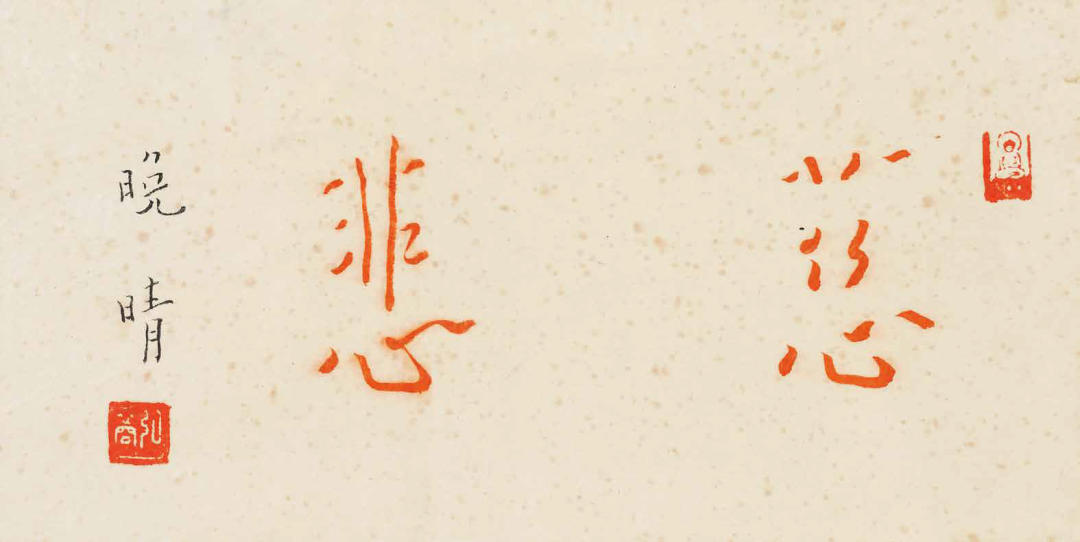 慈悲
晚晴
弘裔